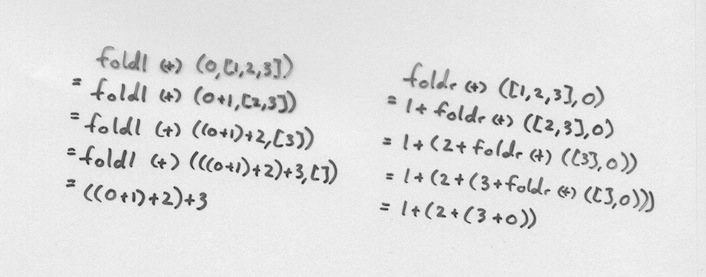 foldl (+) (0,[1,2,3])
= foldl (+) (0+1,[2,3])
= foldl (+) ((0+1)+2,[3])
= foldl (+) (((0+1)+2)+3,[])
= ((0+1)+2)+3
foldr (+) ([1,2,3],0)
= 1+ foldr (+) ([2,3],0)
= 1+(2+foldr (+) ([3],0))
= 1+(2+(3+foldr (+) ([],0)))
= 1+(2+(3+0))